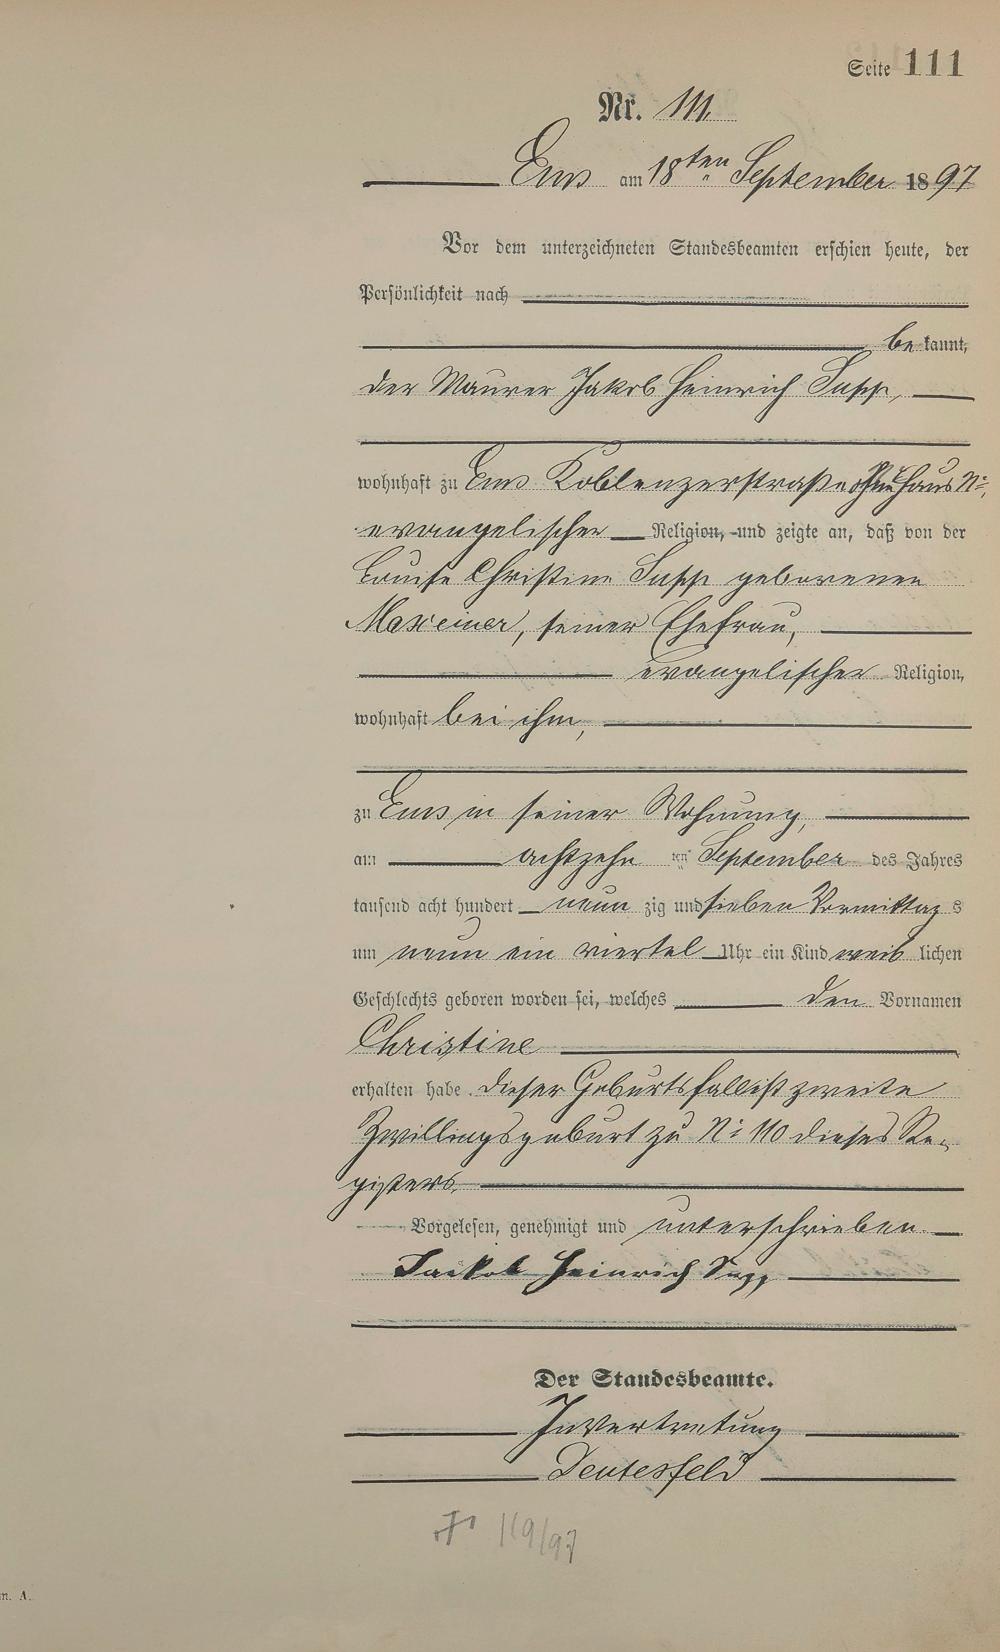 Seite 111
Nr. 111.
Ems am 18ten September 1897
Vor dem unterzeichneten Standesbeamten erschien heute, der
Persönlichkeit nach
bekannt,
der Maurer Jakob Heinrich Supp,
wohnhaft zu Ems Koblenzerstraße ohne Haus No,
evangelischer Religion, und zeigte an, daß von der
Louise Christine Supp geborenen
Maxeiner, seiner Ehefrau,
evangelischer Religion,
wohnhaft bei ihm,
zu Ems in seiner Wohnung,
am achtzehn ten September des Jahres
tausend acht hundert neun zig und sieben Vormittag s
um neun ein viertel Uhr ein Kind weib lichen
Geschlechts geboren worden sei, welches den Vornamen
Christine
erhalten habe. Dieser Geburtsfall ist zweite
Zwillingsgeburt zu No 110 dieses Re-
gisters.
Vorgelesen, genehmigt und unterschrieben
Jackob Heinrich Supp
Der Standesbeamte.
In Vertretung
Deutesfeld
119/97
n. A.